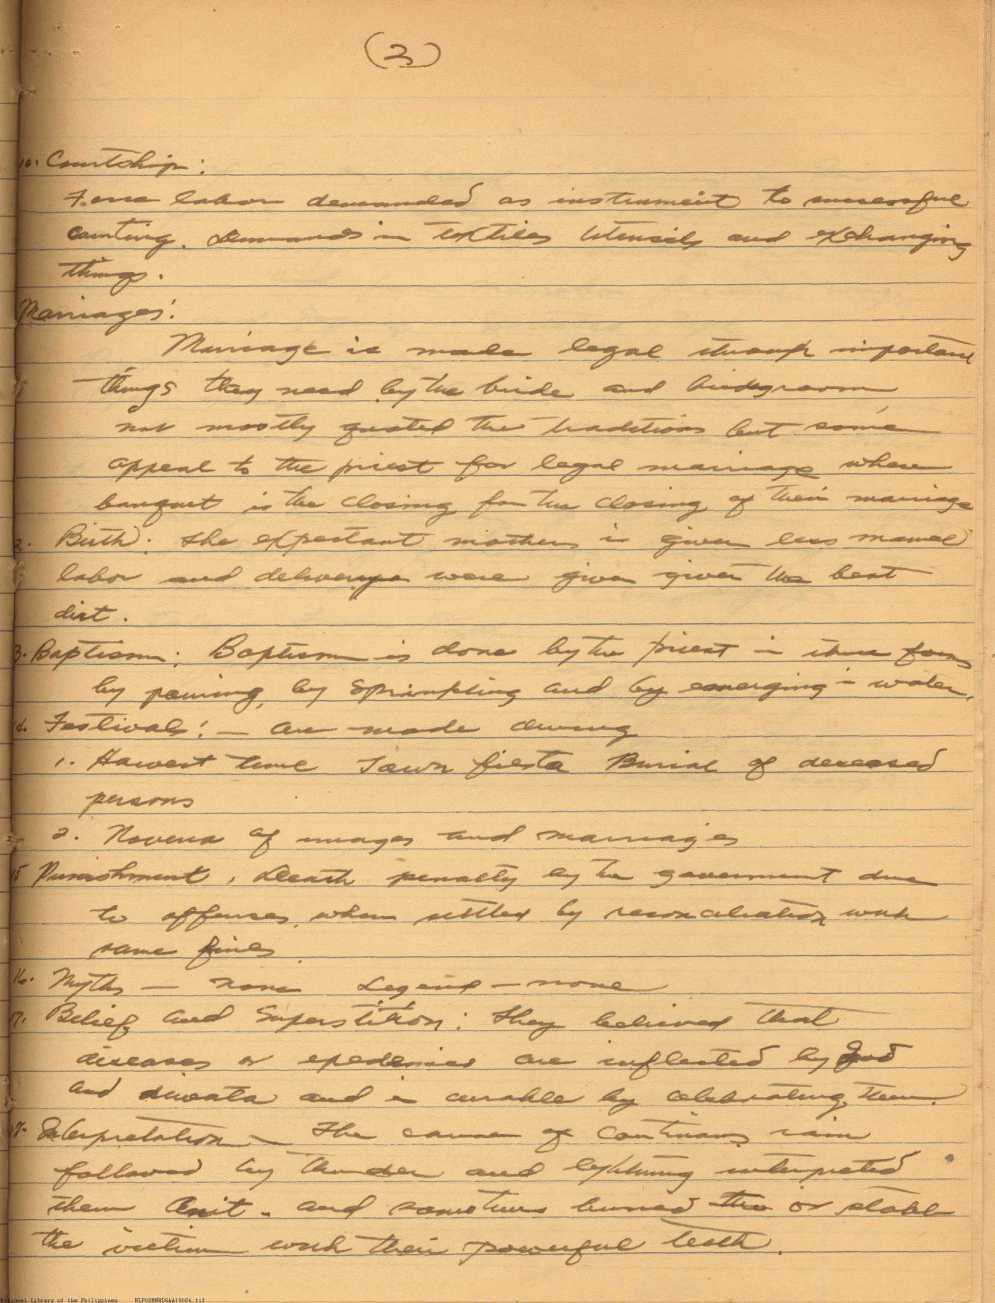 (3)
10. Courtship:
Force labor demanded as instrument to successful
courting. Demands in textiles utensils and exchanging
things.
Marriages:
Marriage is made legal through important
things they need by the bride and bridegroom
not mostly quoted the traditions but some
appeal to the priest for legal marriage where
banquet is the closing for the closing of their marriage
2. Birth: The expectant mothers is given less manual
labor and were given given the best
diet.
3. Baptism: Baptism is done by the priest in three forms
by pouring, by sprinkling and by emerging in water.
14. Festivals: — are made during
1. Harvest time Town fiesta Burial of deceased
persons
2. Novena of images and marriages
15 Punishment, Death penalty by the goverment due
to offenses, when settled by reconciliation with
same fines.
16. Myths — none Legend — none
17. Belief and Superstition: They believed that
diseases or epedemics are inflected by God
and diwata and is curable by celebrating them.
18. Interpretation — The cause of rain
followed by thunder and interpreted
them Anit. and sometimes burned or
the victim with their powerful teeth.
National Library of the Philippines